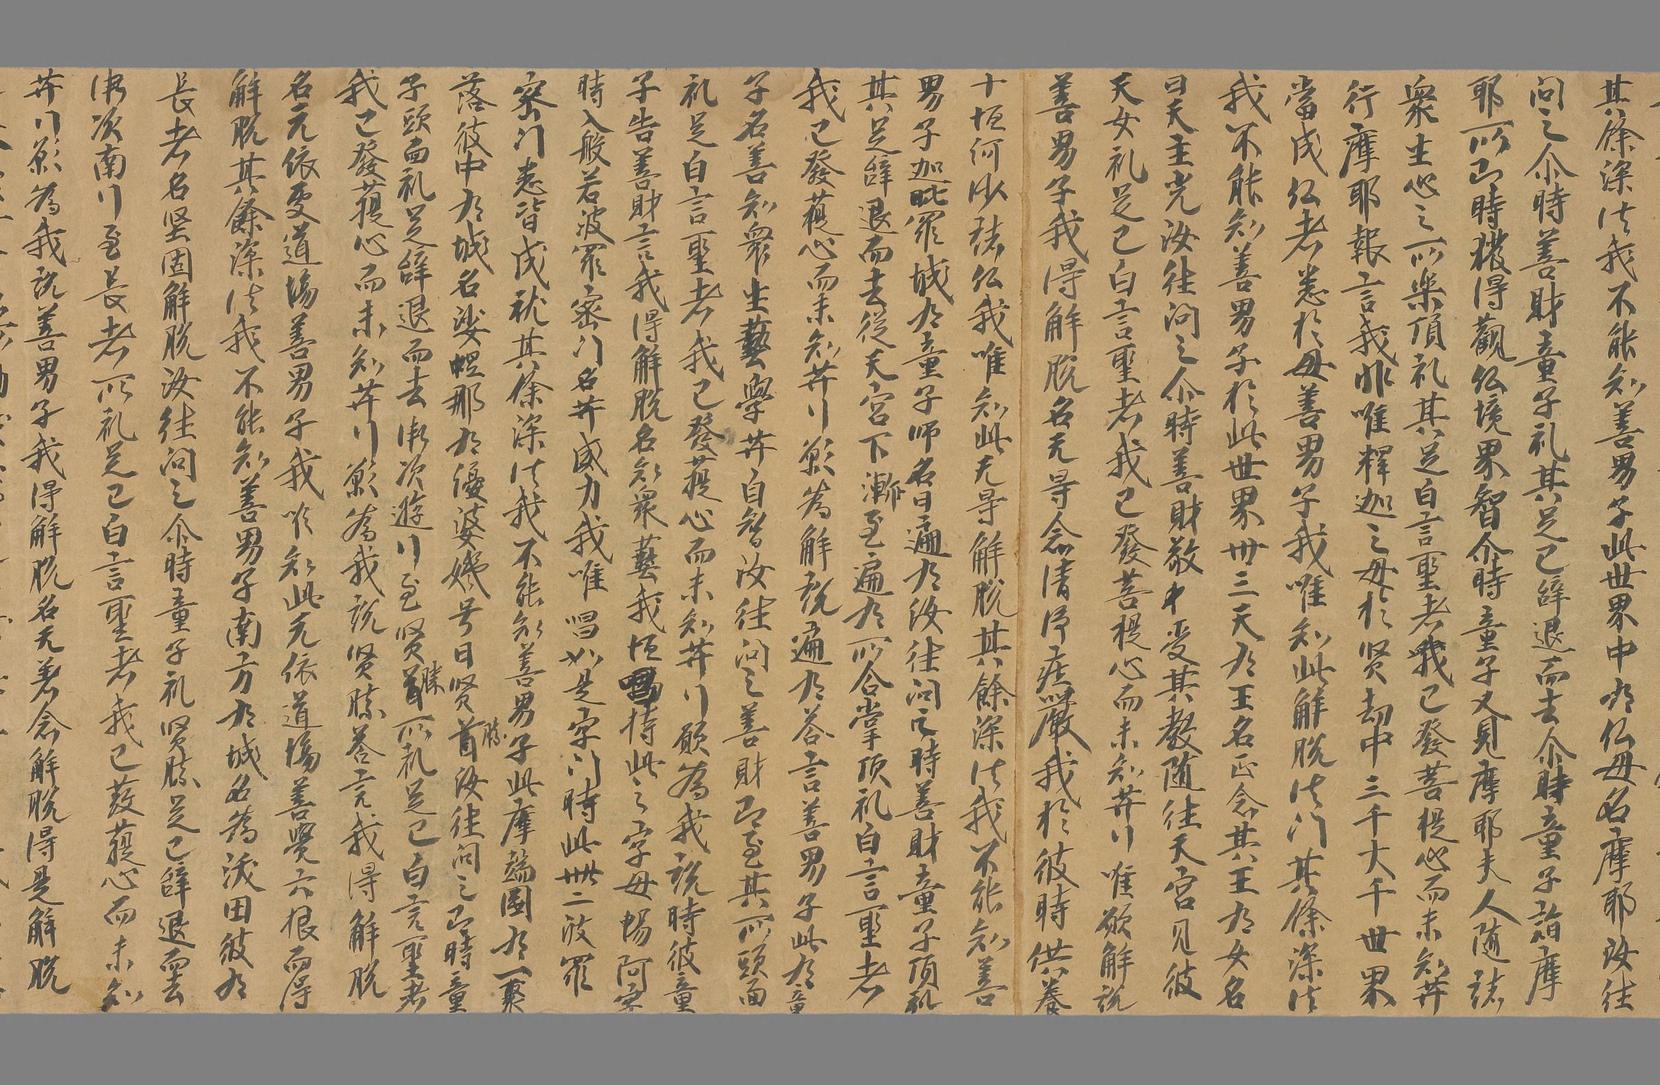 其餘深法我不能知善男子此世界中有仏母名摩耶汝往
問之尒時善財童子礼其足已辞退而去尒時童子詣摩
耶所即時獲得觀仏境界智尒時童子又見摩耶夫人随諸
衆生心之所樂頂礼其足白言聖者我已發菩提心而未知井
行摩耶報言我非唯釋迦之母於賢劫中三千大千世界
當成仏者悉於母善男子我唯知此解脱法門其餘深法
我不能知善男子於此世界卅三天有王名正念其王有女名
曰天主光汝往問之尒時善財敬中受其教随往天宮見彼
天女礼足已白言聖者我已發菩提心而未知井行唯欲解說
善男子我得解脱名无㝵念清淨庄嚴我於彼時供養
十恒河沙諸仏我唯知此无㝵解脱其餘深法我不能知善
男子迦毗羅城有童子師名曰遍有汝往問之時善財童子頂礼
其足辞退而去從天宮下漸至遍有所合掌頂礼白言聖者
我已發菩心而未知井行願為解說遍有荅言善男子此有童
子名善知衆生藝學井自智汝往問之善財即至其所頭面
礼足白言聖者我已發菩心而未知井行願為我說時彼童
子告善財言我得解脱名知衆藝我恒唱持此之字母唱阿字
時入般若波羅密門名井威力我唯唱如是字門時此卌二波羅
密門悉皆成就其餘深法我不能知善男子此摩竭國有一聚
落彼中有城名婆怛那有優婆姨号曰賢首勝汝往問之即時童
子頭面礼足辞退而去漸次遊行至賢首勝所礼足已白言聖者
我已發菩心而未知井行願為我說賢勝荅言我得解脱
名无依䖏道場善男子我唯知此无依道場善覺六根而得
解脱其餘深法我不能知善男子南方有城名為沃田彼有
長者名坚固解脱汝往問之尒時童子礼賢勝足已辞退而去
漸次南行至長者所礼足已白言聖者我已發菩心而未知
井行願為我說善男子我得解脱名无着念解脱得是解脱